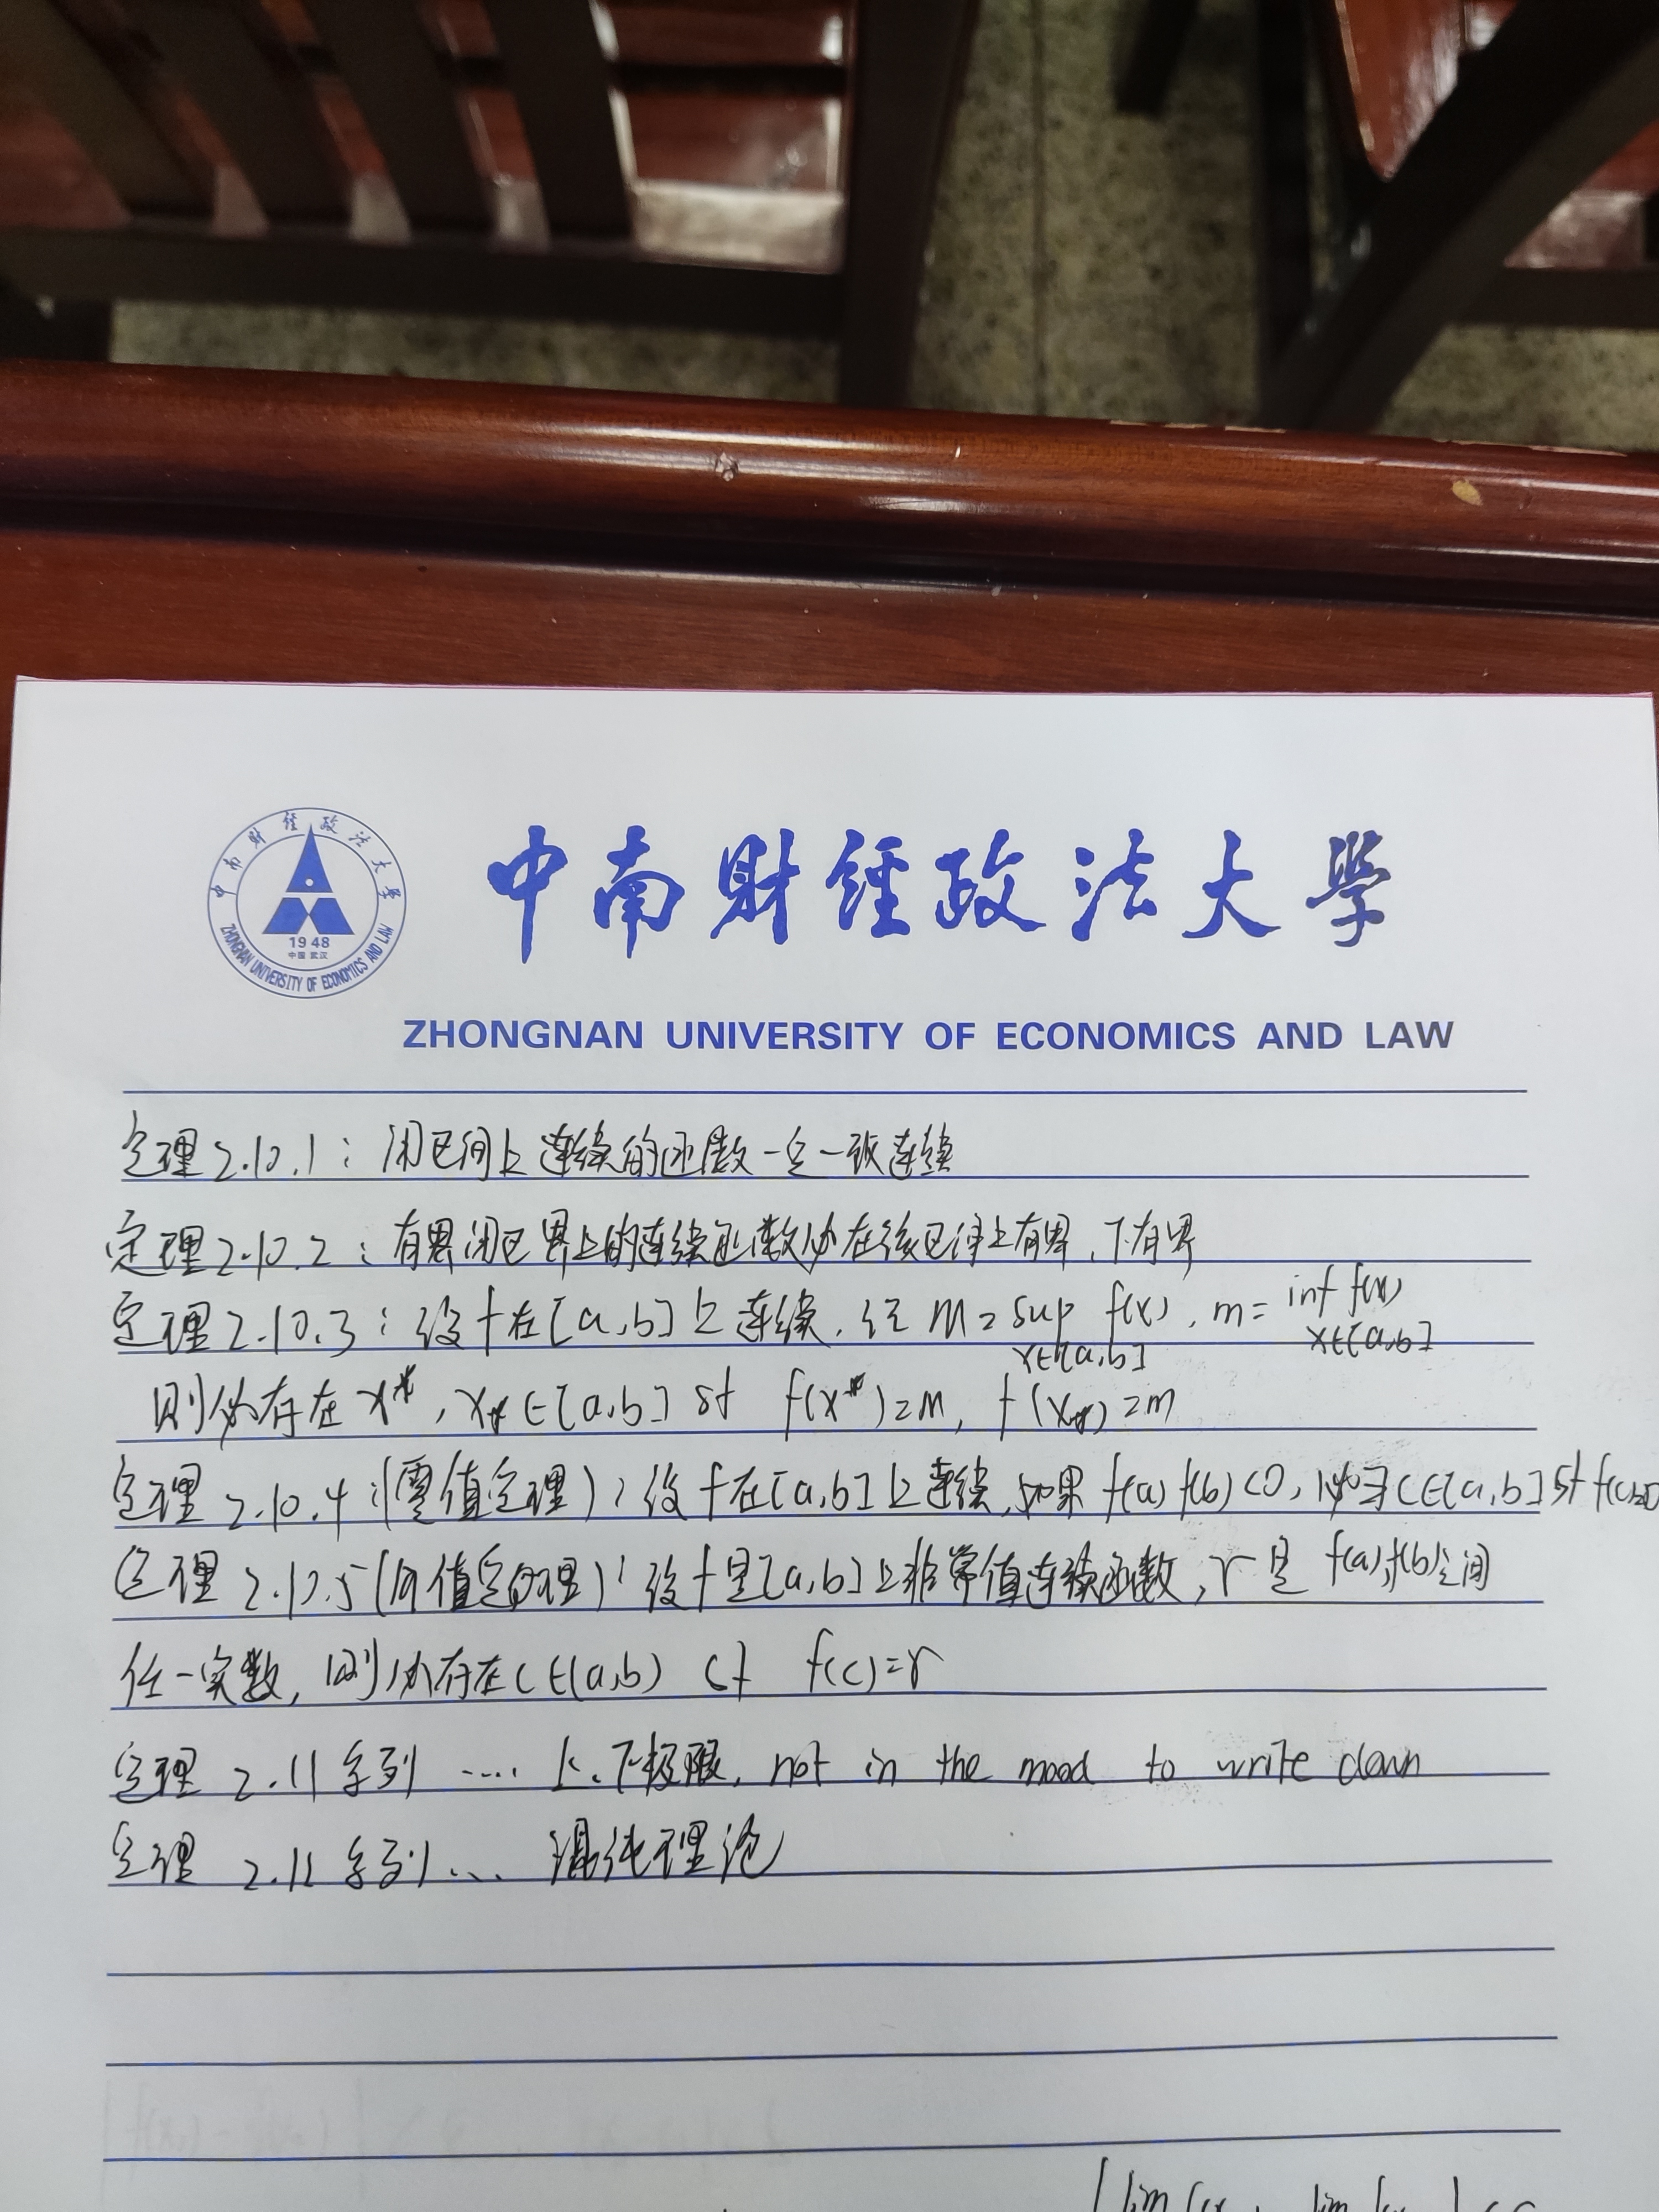 中南财经政法大学
ZHONGNAN UNIVERSITY OF ECONOMICS AND LAW
1948
中国 武汉
中南财经政法大學
ZHONGNAN UNIVERSITY OF ECONOMICS AND LAW
定理2.10.1：闭区间上连续的函数一定一致连续
定理2.10.2：有界闭区界上的连续函数必在该区间上有界、下有界
定理2.10.3：设f在[a,b]上连续，记 M=sup f(x), m=inf f(x)
x∈[a,b] x∈[a,b]
则必存在x*, x*∈[a,b] st f(x*)=M, f(x*)=m
定理2.10.4：(零值定理)：设f在[a,b]上连续,如果f(a)f(b)<0, 必∃c∈[a,b] st f(c)=0
定理2.10.5(介值定理)：设f是[a,b]上非常值连续函数,r是f(a),f(b)之间
任一实数，则必存在c∈(a,b) st f(c)=r
定理2.11系列 .... 上、下极限, not in the mood to write down
定理 2.12系列... 混沌理论
lim lim